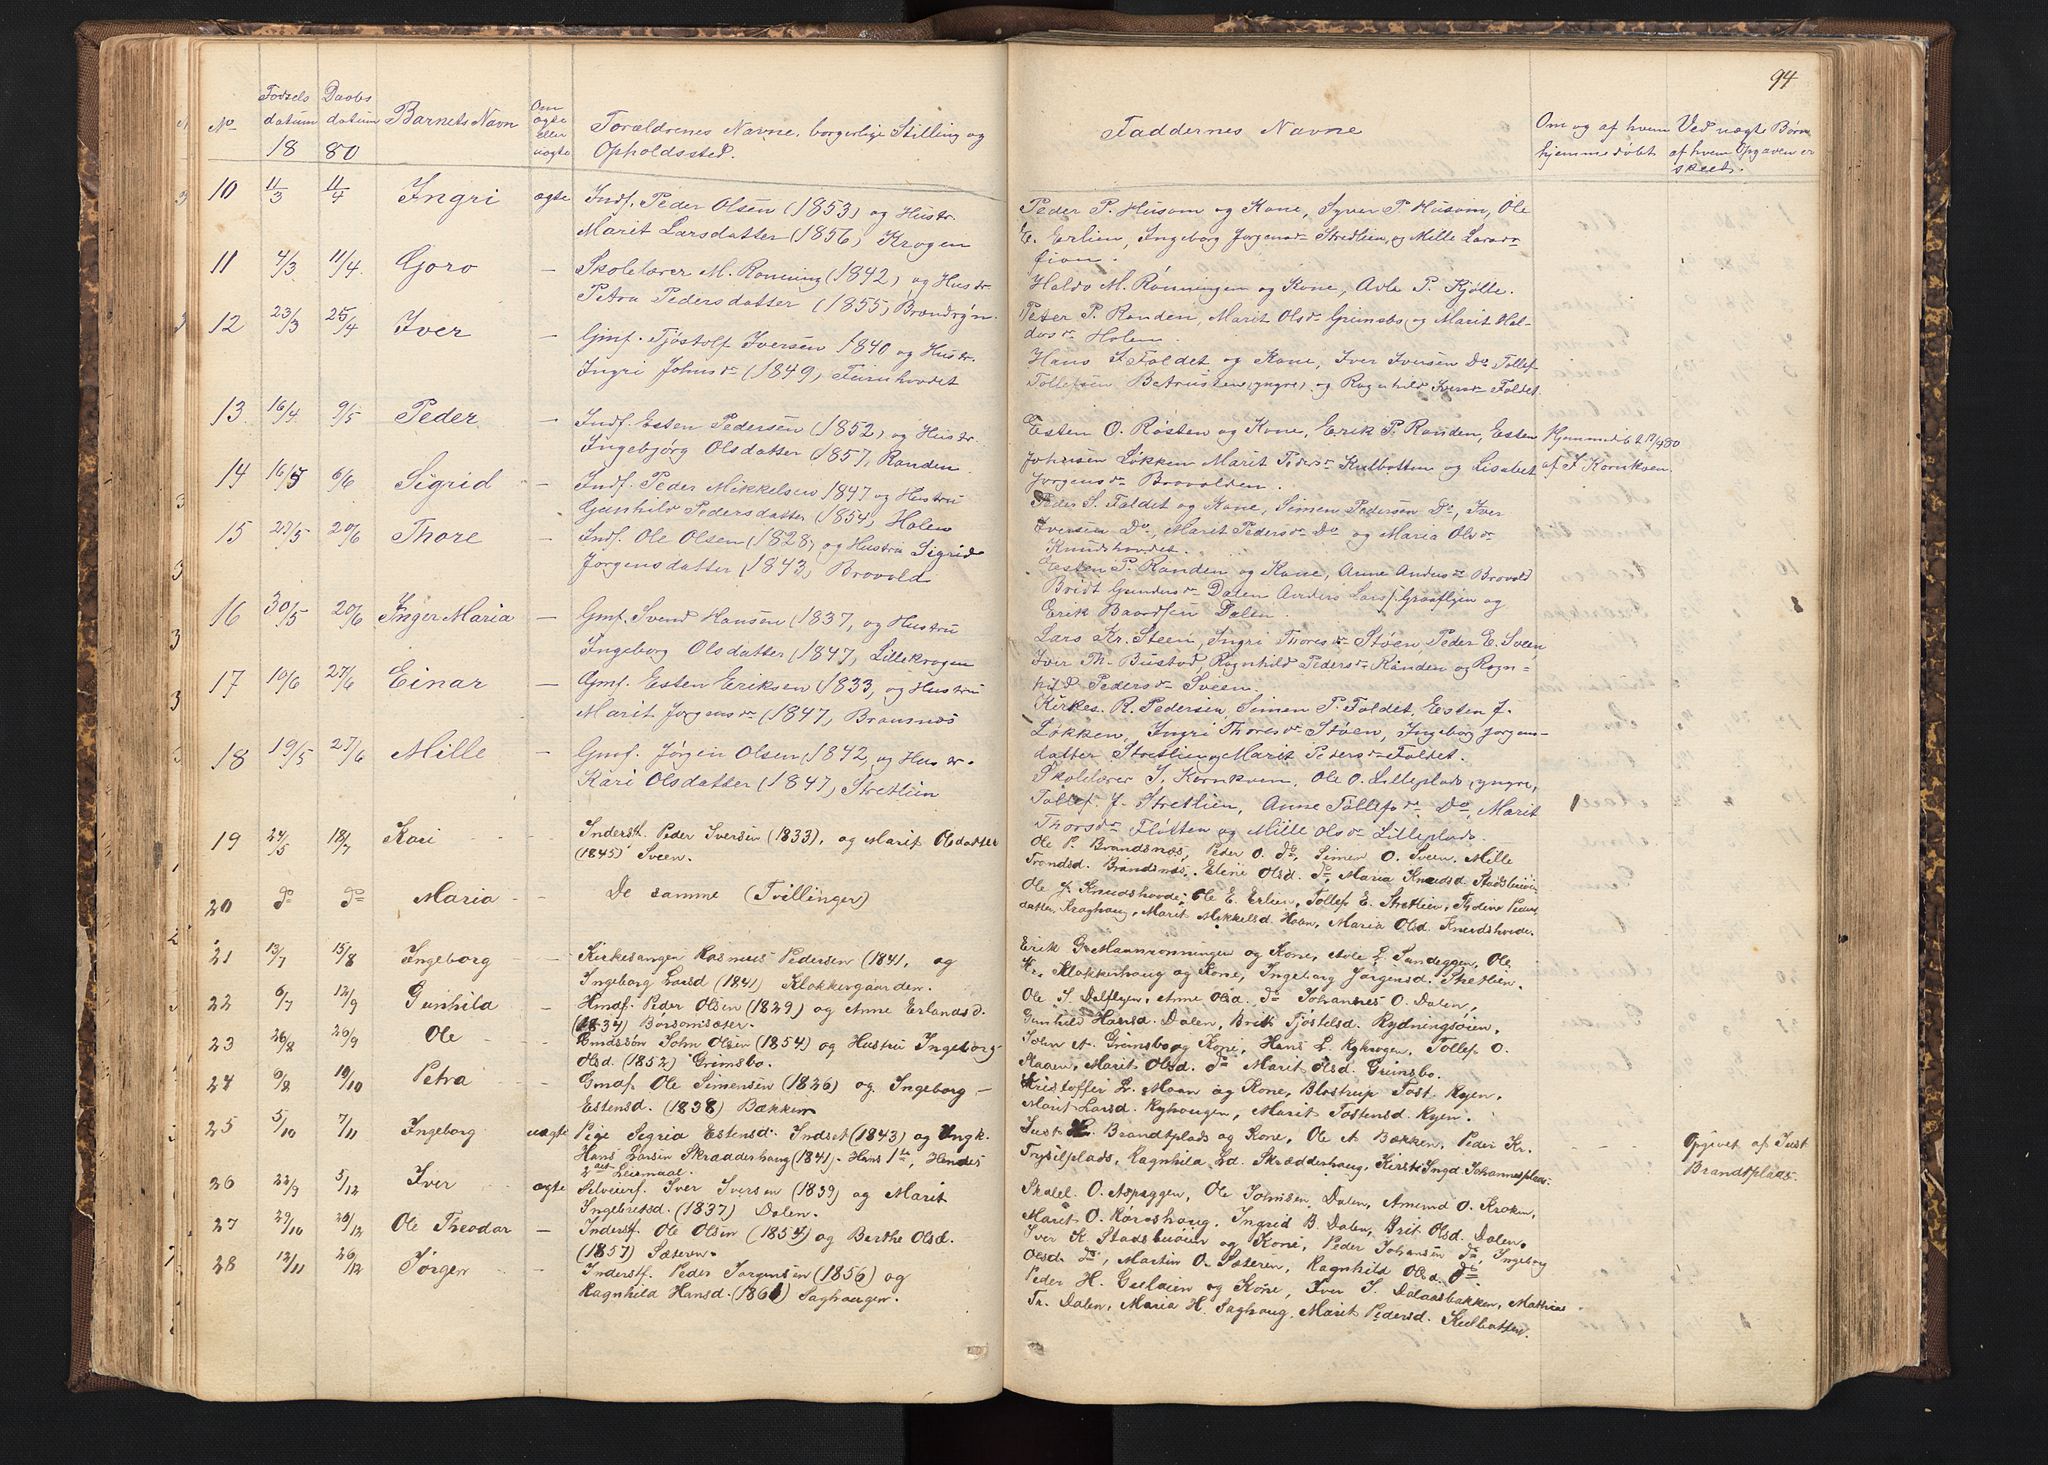 94
No
Fødsels datum 18
Daabs datum 80
Barnets Navn
Om ægte eller uægte
Forældrenes Navne, borgerlige Stilling og
Opholdssted.
Faddernes Navne
Om og af hvem
hjemmedøbt
Ved uægte Børn
af hvem Opgaven er
skeet.
10 11/3 11/4 Ingri ægte Indf. Peder Olsen (1853) og Hustr.
Marit Larsdatter (1856) Krogen
Peder P. Husom og Kone, Syver P. Husom, Ole
E. Erlien, Ingeborg Jørgensdr Stretlien, og Mille Larsdr
11 4/3 11/4. Goro — Skolelærer M. Rønning (1842) og Hustr.
Petra Pedersdatter (1855)
Haldo M. Rønningen og Kone, Avle P. Kjølle.
Peter P. Randen, Marit Olsdr Grimsbo, og Marit Hal-
dosdr Holen.
12 23/3 25/4 Iver — Gmf. Tjøstolf Iversen 1840 og Hustr.
Ingri Johnsdr (1849)
Hans S Foldet og Kone, Iver Iversen Do Tollef
Tollefsen (yngre) og Ragnhild Iversdr Foldet.
13 16/4. 9/5 Peder. — Indf. Esten Pedersen (1852) og Hustr.
Ingebjørg Olsdatter (1857, Randen.
Esten O. Røsten og Kone, Erik P. Randen, Esten
Johnsen Løkken Marit Pedersdr Kulbotten og Lisabet
Jørgensdr Brovolden.
Hjemmedøbt 17/4 80
af J. Kornkven.
14 16/5 6/6 Sigrid — Indf. Peder Mikkelsen 1847 og Hustru
Gunhild Pedersdatter (1854, Holen
Peder S. Foldet og Kone, Simen Pedersen Do, Iver
Iversen Do, Marit Pedersdr Do og Maria Olsdr
Knudshovdet.
15 27/5 20/6 Thore — Indf. Ole Olsen (1828) og Hustru Sigrid
Jørgensdatter (1843, Brovold
Esten P. Randen og Kone, Anne Andersdr Brovold
Bridt Gundersdr Dalen Anders Larss.
Erik Baardsen Dalen.
16 30/5 20/6 Inger Maria — Gmf. Svend Hansen (1837, og Hustru
Ingeborg Olsdatter (1847, Lillekrogen
Lars Kr. Steen, Ingri Thoresdr Støen, Peder E. Sveen,
Iver Th. Bustad, Ragnhild Pedersdr Randen og Ragn-
hild Pedersdr Sveen.
17 10/6 27/6 Einar — Gmf. Esten Eriksen (1833, og Hustru
Marit Jørgensdr (1847, Bransnæs
Kirkes. R. Pedersen, Simen P. Foldet, Esten J.
Løkken, Ingri Thoresdr Støen, Ingeborg Jørgens-
datter Stretlien og Marit Pedersdr Foldet.
18 19/5 27/6 Mille — Gmf. Jørgen Olsen (1842, og Hustr.
Kari Olsdatter (1847) Stretlien
Skolelærer J. Kornkven, Ole O. Lilleplads, yngre,
Tollef. J. Stretlien, Anne Tollefsdr Do, Marit
Thorsdr Fløtten og Mille Olsdr Lilleplads.
19 24/5 18/7 Kari - Inderst. Peder Iversen (1833), og Marit Olsdatter
(1845) Sveen.
Ole P. Brandsnæs, Peder O. do, Simen O. Sveen, Mille
Trondsd. Brandsnæs, Eline Olsd. do, Maria Knudsd. Stadsbuøien
20 do do Maria - De samme (Tvillinger)
Ole J. Knudshovde, Ole E. Erlien, Tollef E. Stretlien, Peders
datter, Kraghaug, Marit Mikkelsd. Haan, Maria Olsd. Knudshovde.
21 13/7 15/8 Ingeborg — Kirkesanger Rasmus Pedersen (1841, og
Ingeborg Larsd (1841) Klokkergaarden.
Erik G. Maanrønningen og Kone, Avle L. Sandeggen, Ole
Kr. Klokkerhaug og Kone, Ingeborg Jørgensd. Stretlien.
22 6/7 12/9 Gunhild — Hmdf. Peder Olsen (1829) og Anne Erlandsd.
(1834) Børsomsæter.
Ole S. Dalflyen, Anne Olsd. do Johannes O. Dalen,
Gunhild Hansd. Dalen, Brit Tjøstelsd. Rydningsøien.
23 26/8 26/9 Ole John Olsen (1854) og Hustru Ingeborg
Olsd. (1852) Grimsbo.
John A. Grimsbo og Kone, Hans L. Rykrogen, Tollef O.
Aaaen, Marit Olsd. do Marit Olsd. Grimsbo.
24 9/8 10/10 Petra Gmdf Ole Simensen (1826) og Ingeborg —
Estensd. (1838) Bækken
Kristoffer L. Moan og Kone, Blostrup Tost. Ryen,
Marit Larsd. Ryhaugen, Marit Tostensd. Ryen.
25 5/10 7/11 Ingeborg uægte Pige Segria Estensd. Indset (1843) og Ungk.
Hans Larsen Skrædderhaug (1841). Hans 1ste, Hendes
2det Leiermaal.
Just H. Brandtplads og Kone, Ole A. Bækken, Peder Kr.
Trysilplads, Ragnhild Ld. Skrædderhaug, Kirsti Ingd. Johannesplads.
Opgivet af Just
Brandtplads.
26 22/9 5/12 Iver - ægte Selveierf. Iver Iversen (1839) og Marit
Ingebretsd. (1837) Dalen.
Skolel. O. Aspeggen, Ole Johnsen, Dalen, Amund O. Kroken,
Marit O. Kørøshaug, Ingrid B. Dalen, Brit Olsd. Dalen.
27 29/10 26/12 Ole Theodor — Inderstf. Ole Olsen (1854) og Berthe Olsd.
(1857) Sæteren.
Iver K. Stadsbuøien og Kone, Peder Johansen do, Ingeborg
Olsd. do, Martin O. Sæteren, Ragnhild Olsd. do
28 12/11 26/12 Jørgen - Inderstf. Peder Jørgensen (1856) og
Ragnhild Hansd. (1861) Saghaugen.
Peder H. Gjelaien og Kone, Iver S. Dalaasbakken, Mathias
Tr. Dalen, Maria H. Saghaug, Marit Pedersd. Kulbotten.